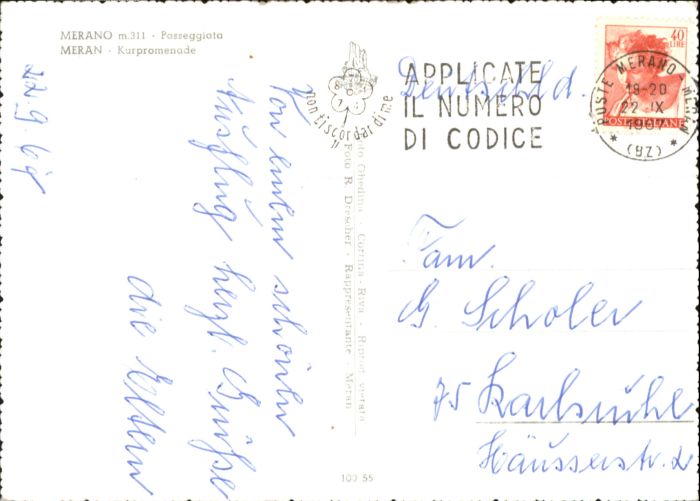 MERANO m.311 - Passeggiata
MERAN - Kurpromenade
22.9.67
Von einem schönen
Ausflug herzl. Grüße
die Eltern
non ti scordar di me
APPLICATE
IL NUMERO
DI CODICE
40
LIRE
POSTE MERANO - MERAN
19-20
22 IX
1967
(BZ)
POSTE ITALIANE
Deutschld.
Foto Ghedina - Cortina - Riva - Riprod. vietata
Foto R. Drescher - Rappresentante - Meran
Fam.
G. Scholer
75 Karlsruhe
Häusserstr. 2
100 55